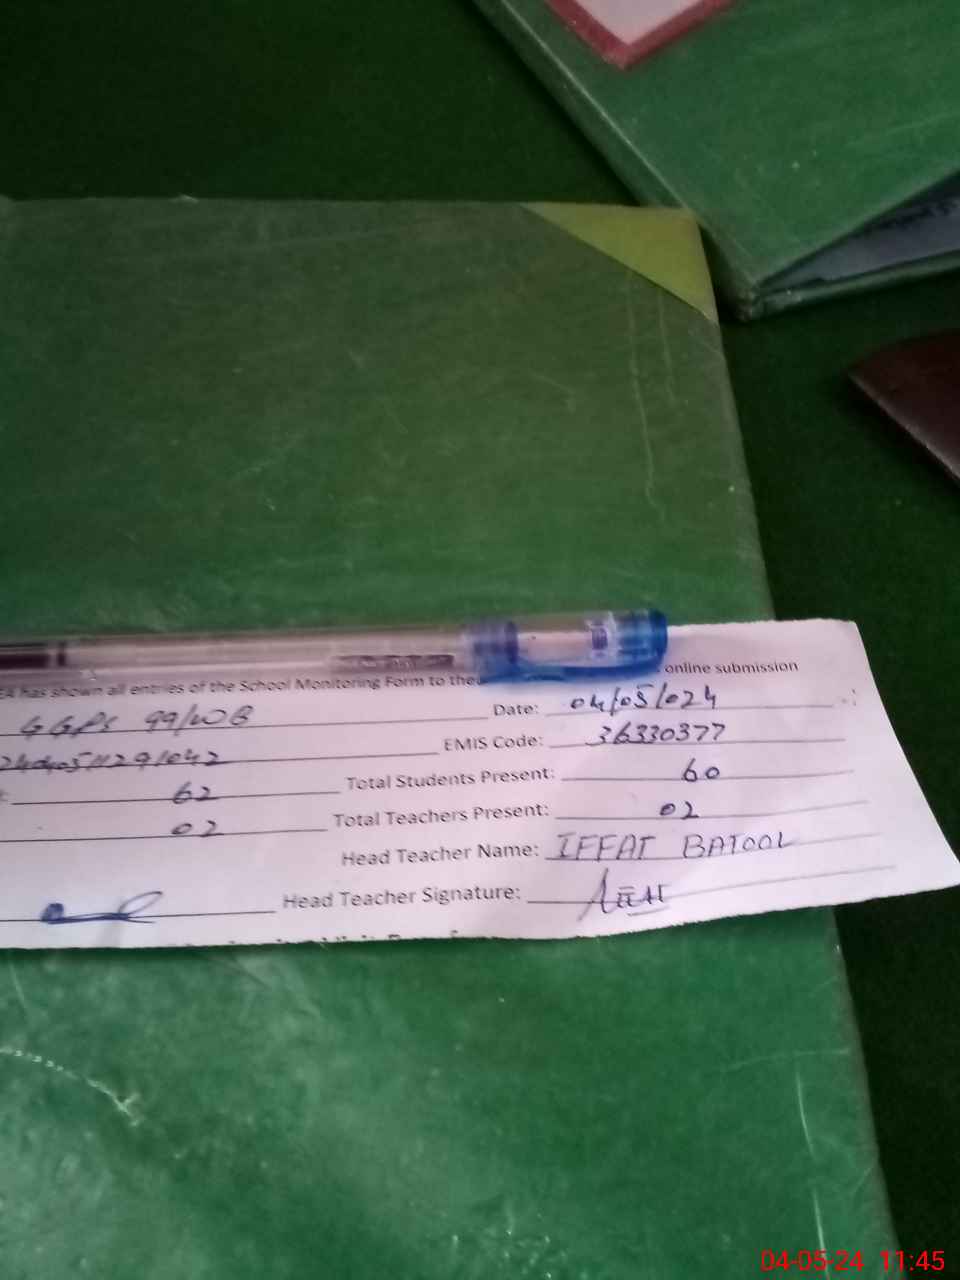 EA has shown all entries of the School Monitoring Form to the online submission
GGPS 99/WB Date: 04/05/024
EMIS Code: 36330377
62 Total Students Present: 60
02 Total Teachers Present: 02
Head Teacher Name: IFFAT BATOOL
Head Teacher Signature:
04-05-24 11:45